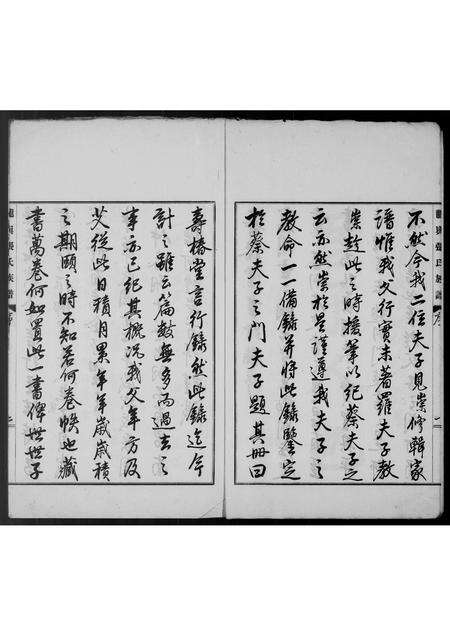 不然今我二位夫子見崇修輯家
譜惟我父行實未著羅夫子教
崇趁此之時援筆以紀蔡夫子之
云亦然崇於是謹遵我夫子之
教命一一備錄并將此錄鑒定
於蔡夫子之門夫子題其冊曰
壽椿堂言行錄然此錄迄今
計之雖云篇數無多而過去之
事亦已紀其概況我父年方及
艾從此日積月累年年歲歲積
之期頤之時不知若何卷帙也藏
書萬卷何如置此一書俾世世子